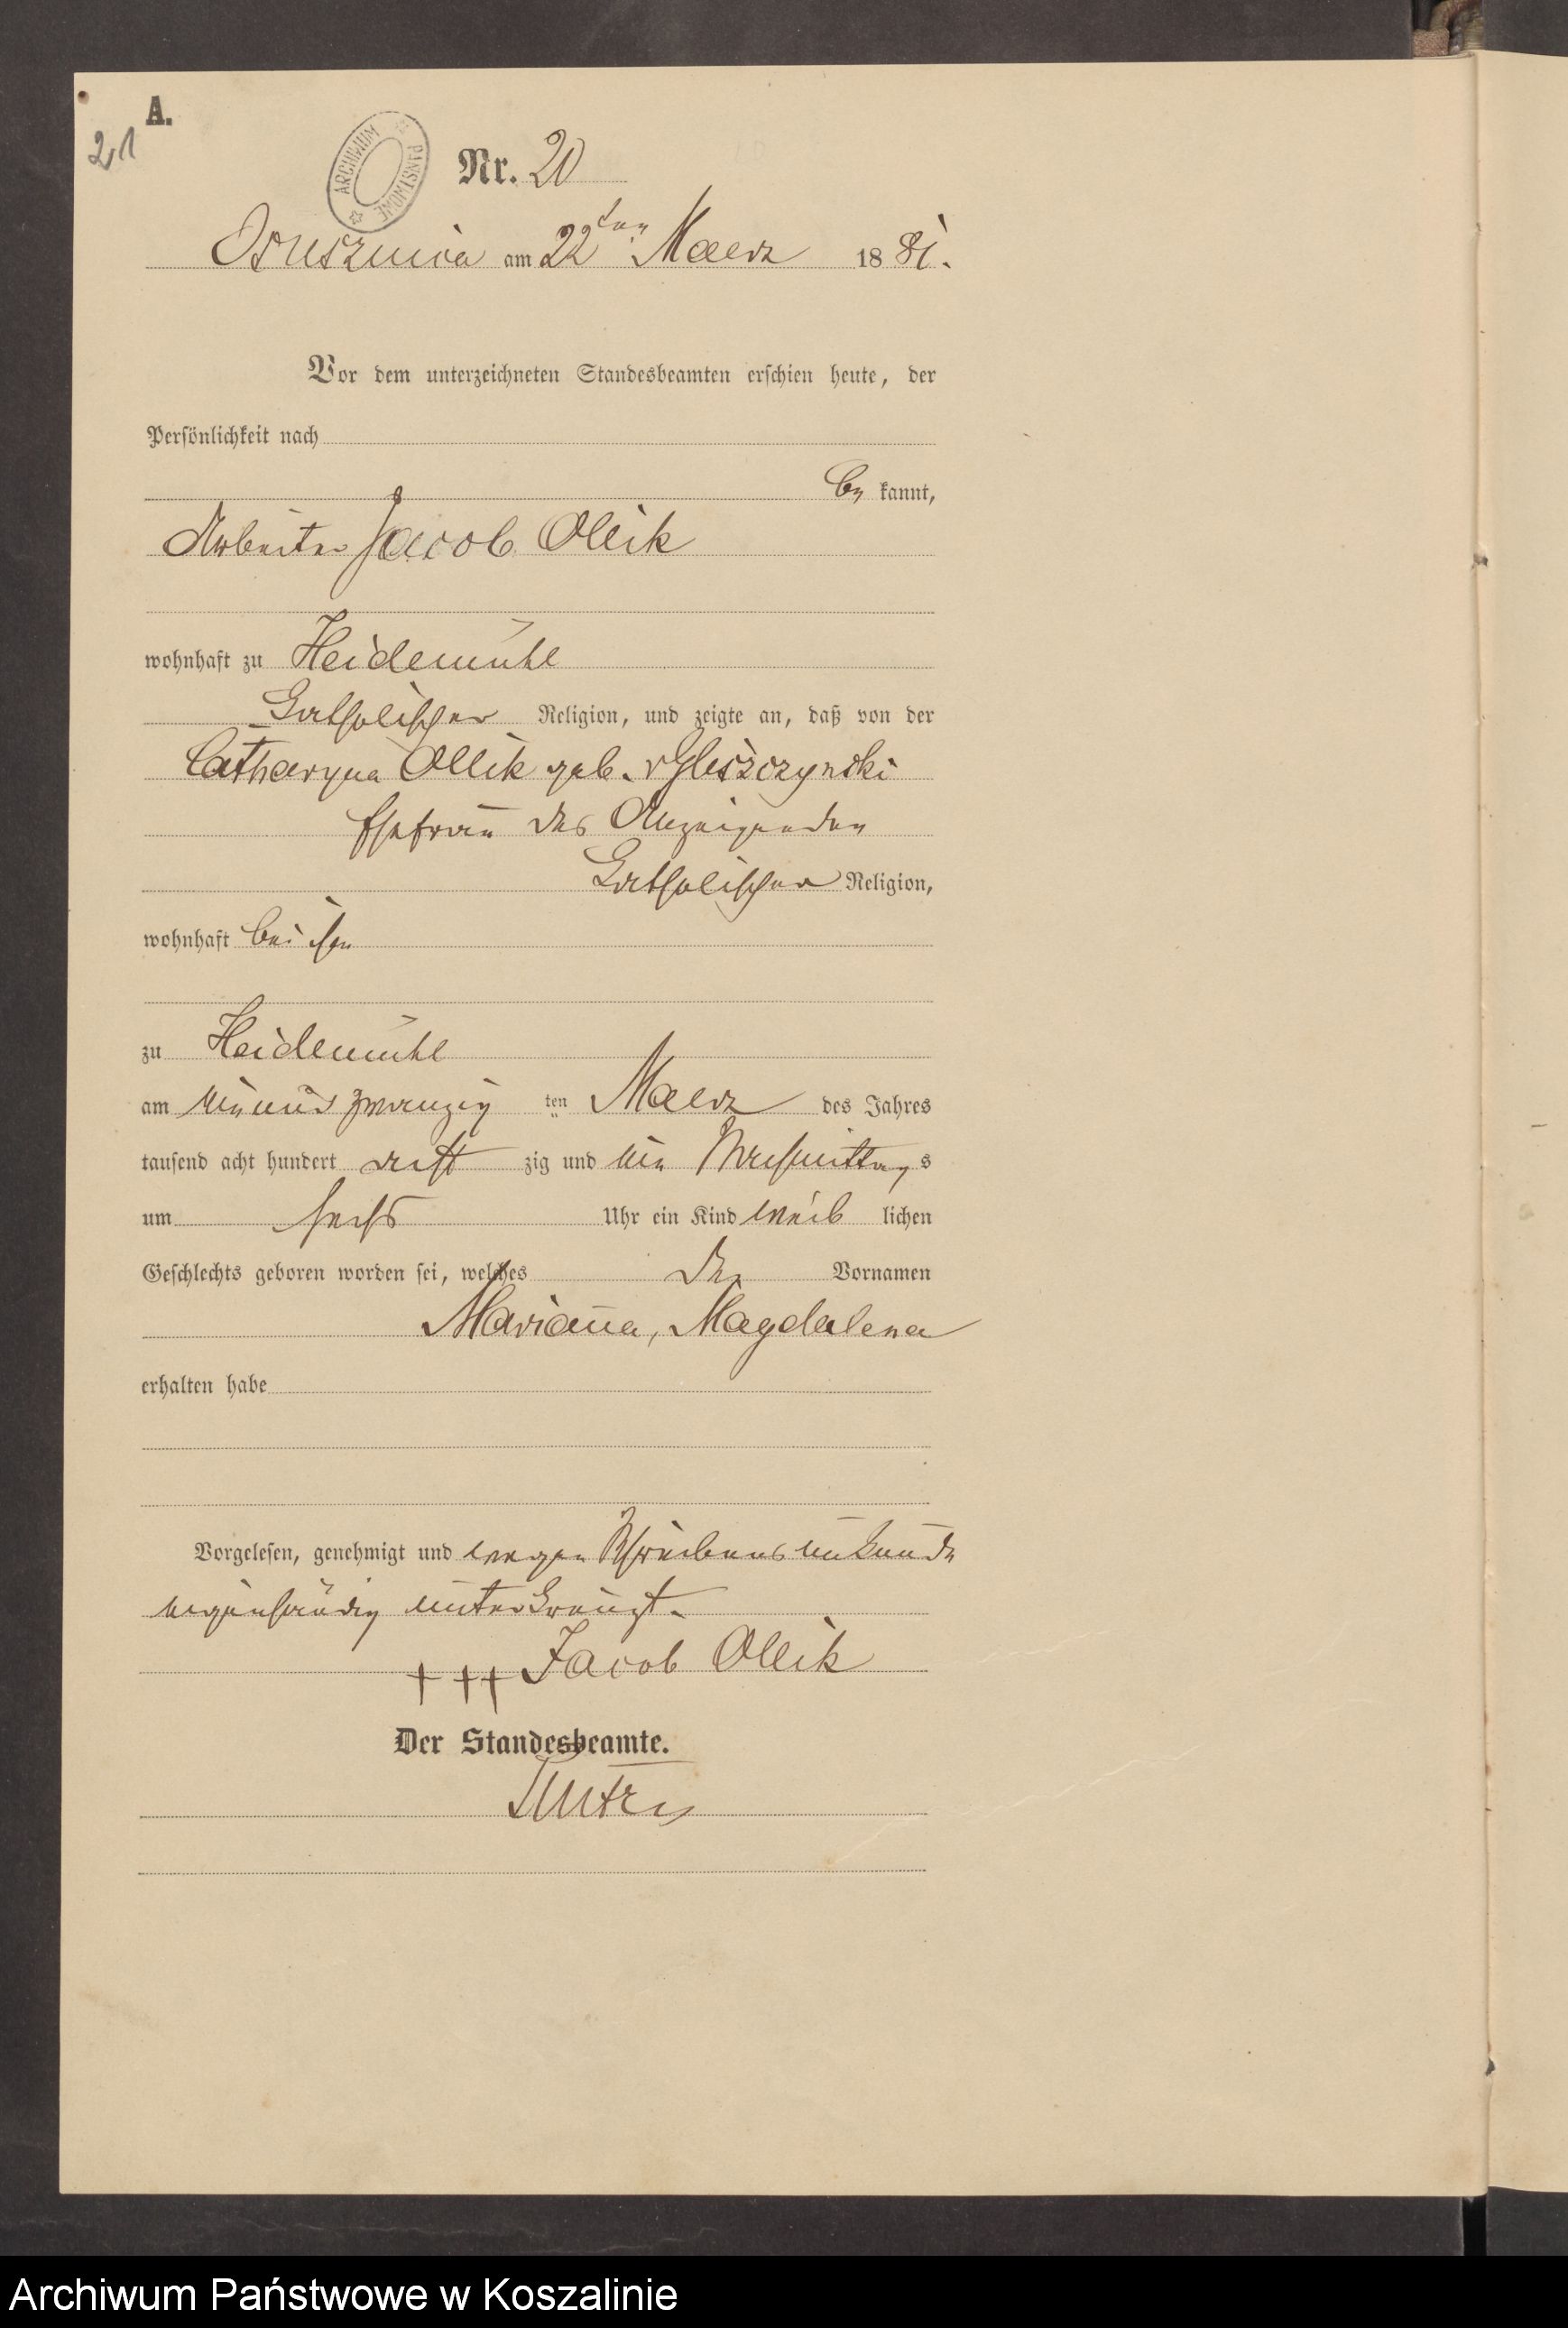 A.
21
ARCHIWUM PAŃSTWOWE
Nr. 20
Osusznica am 22ten Maerz 1881.
Vor dem unterzeichneten Standesbeamten erschien heute, der
Persönlichkeit nach
be kannt,
Arbeiter Jacob Ollik
wohnhaft zu Heidemühl
katholischer Religion, und zeigte an, daß von der
Catharyna Ollik geb. v Gliszczynski
Ehefrau des Anzeigenden
katholischer Religion,
wohnhaft bei ihm
zu Heidemühl
am einundzwanzig ten Maerz des Jahres
tausend acht hundert acht zig und ein Nachmittag s
um sechs Uhr ein Kind weib lichen
Geschlechts geboren worden sei, welches die Vornamen
Marianna, Magdalena
erhalten habe
Vorgelesen, genehmigt und wegen Schreibensunkunde
eigenhändig unterkreuzt.
+ ++ Jacob Ollik
Der Standesbeamte.
Archiwum Państwowe w Koszalinie